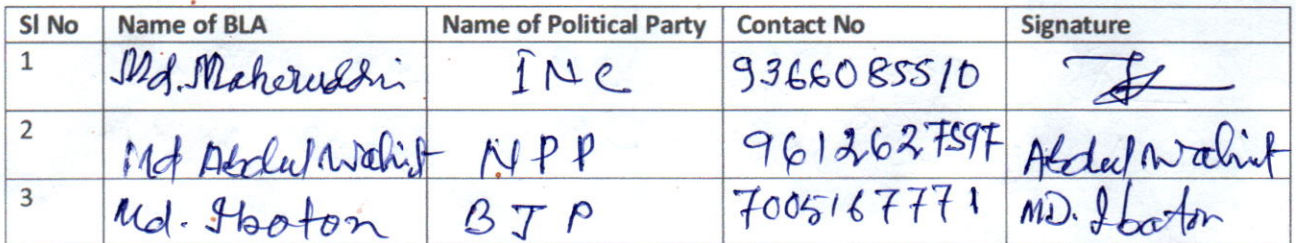 Sl No Name of BLA Name of Political Party Contact No Signature
1 Md. Maheruddin INC 9366085510
2 Md Abdul Wahid NPP 9612627597 Abdul Wahid
3 Md. Iboton BJP 7005167771 MD. Iboton